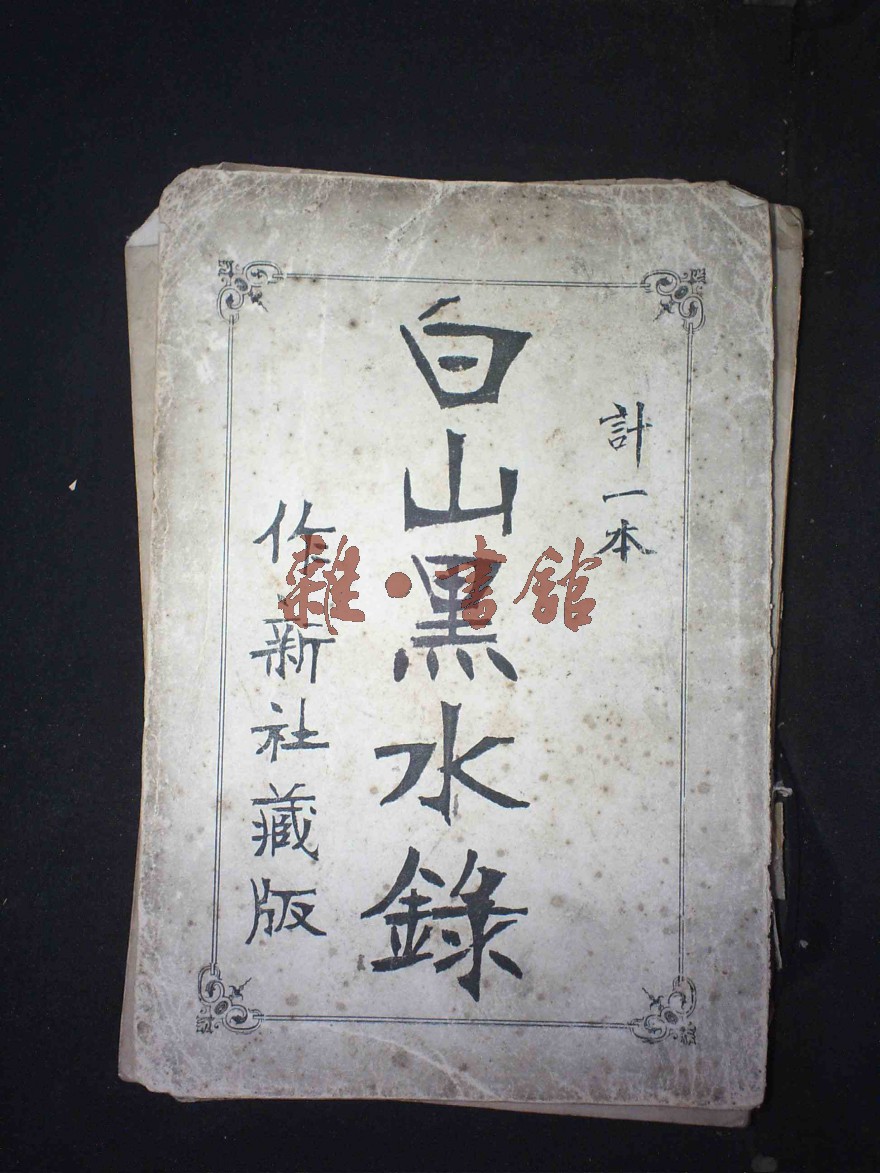 計一本
白山黒水錄
作新社藏版
雜·書館